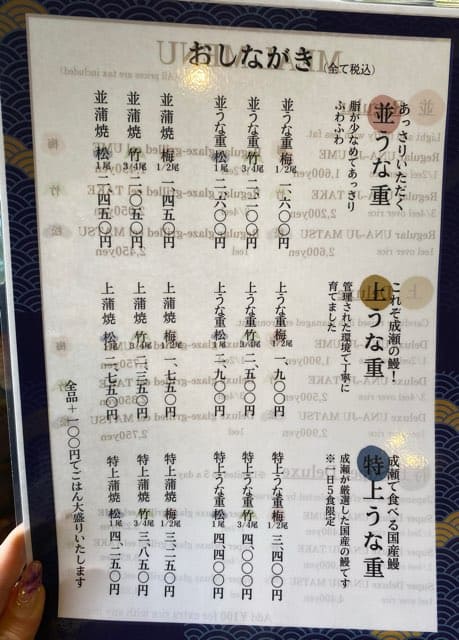 おしながき (全て税込)
あっさりいただく
並うな重
脂が少なめであっさり
ふわふわ
並うな重 梅 1/2尾 一、六〇〇円
並うな重 竹 3/4尾 二、二〇〇円
並うな重 松 1尾 二、六〇〇円
並蒲焼 梅 1/2尾 一、四五〇円
並蒲焼 竹 3/4尾 二、〇五〇円
並蒲焼 松 1尾 二、四五〇円
これぞ成瀬の鰻!
上うな重
管理された環境で丁寧に
育てました
上うな重 梅 1/2尾 一、九〇〇円
上うな重 竹 3/4尾 二、五〇〇円
上うな重 松 1尾 二、九〇〇円
上蒲焼 梅 1/2尾 一、七五〇円
上蒲焼 竹 3/4尾 二、三五〇円
上蒲焼 松 1尾 二、七五〇円
成瀬で食べる国産鰻
特上うな重
成瀬が厳選した国産の鰻です
※一日5食限定
特上うな重 梅 1/2尾 三、四〇〇円
特上うな重 竹 3/4尾 四、〇〇〇円
特上うな重 松 1尾 四、四〇〇円
特上蒲焼 梅 1/2尾 三、二五〇円
特上蒲焼 竹 3/4尾 三、八五〇円
特上蒲焼 松 1尾 四、二五〇円
全品+一〇〇円でごはん大盛りいたします